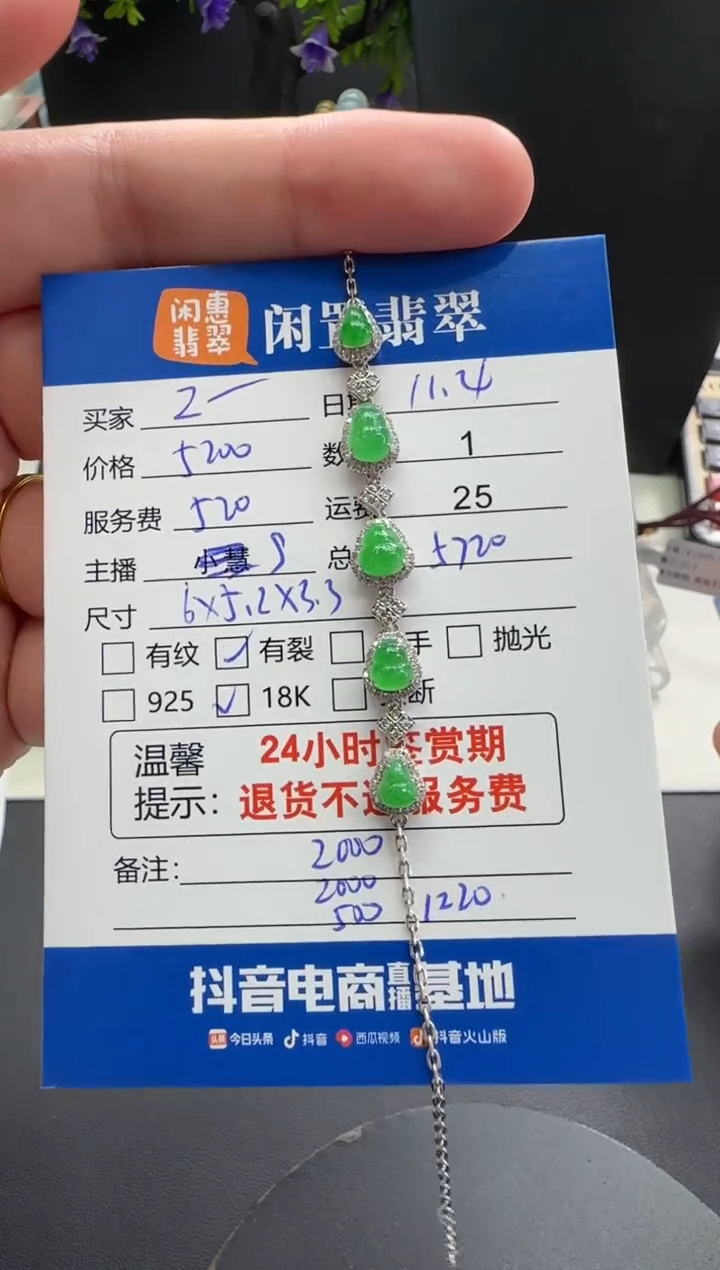 闲惠
翡翠
闲置翡翠
买家 2一 日期 11.4
价格 5200 数 1
服务费 520 运费 25
主播 小慧 总 5720
尺寸 6×5.2×3.3
有纹 有裂 手 抛光
925 18K 断
温馨 24小时鉴赏期
提示： 退货不退服务费
备注： 2000
2000
500 1220
抖音电商直播基地
头条 今日头条 抖音 西瓜视频 抖音火山版